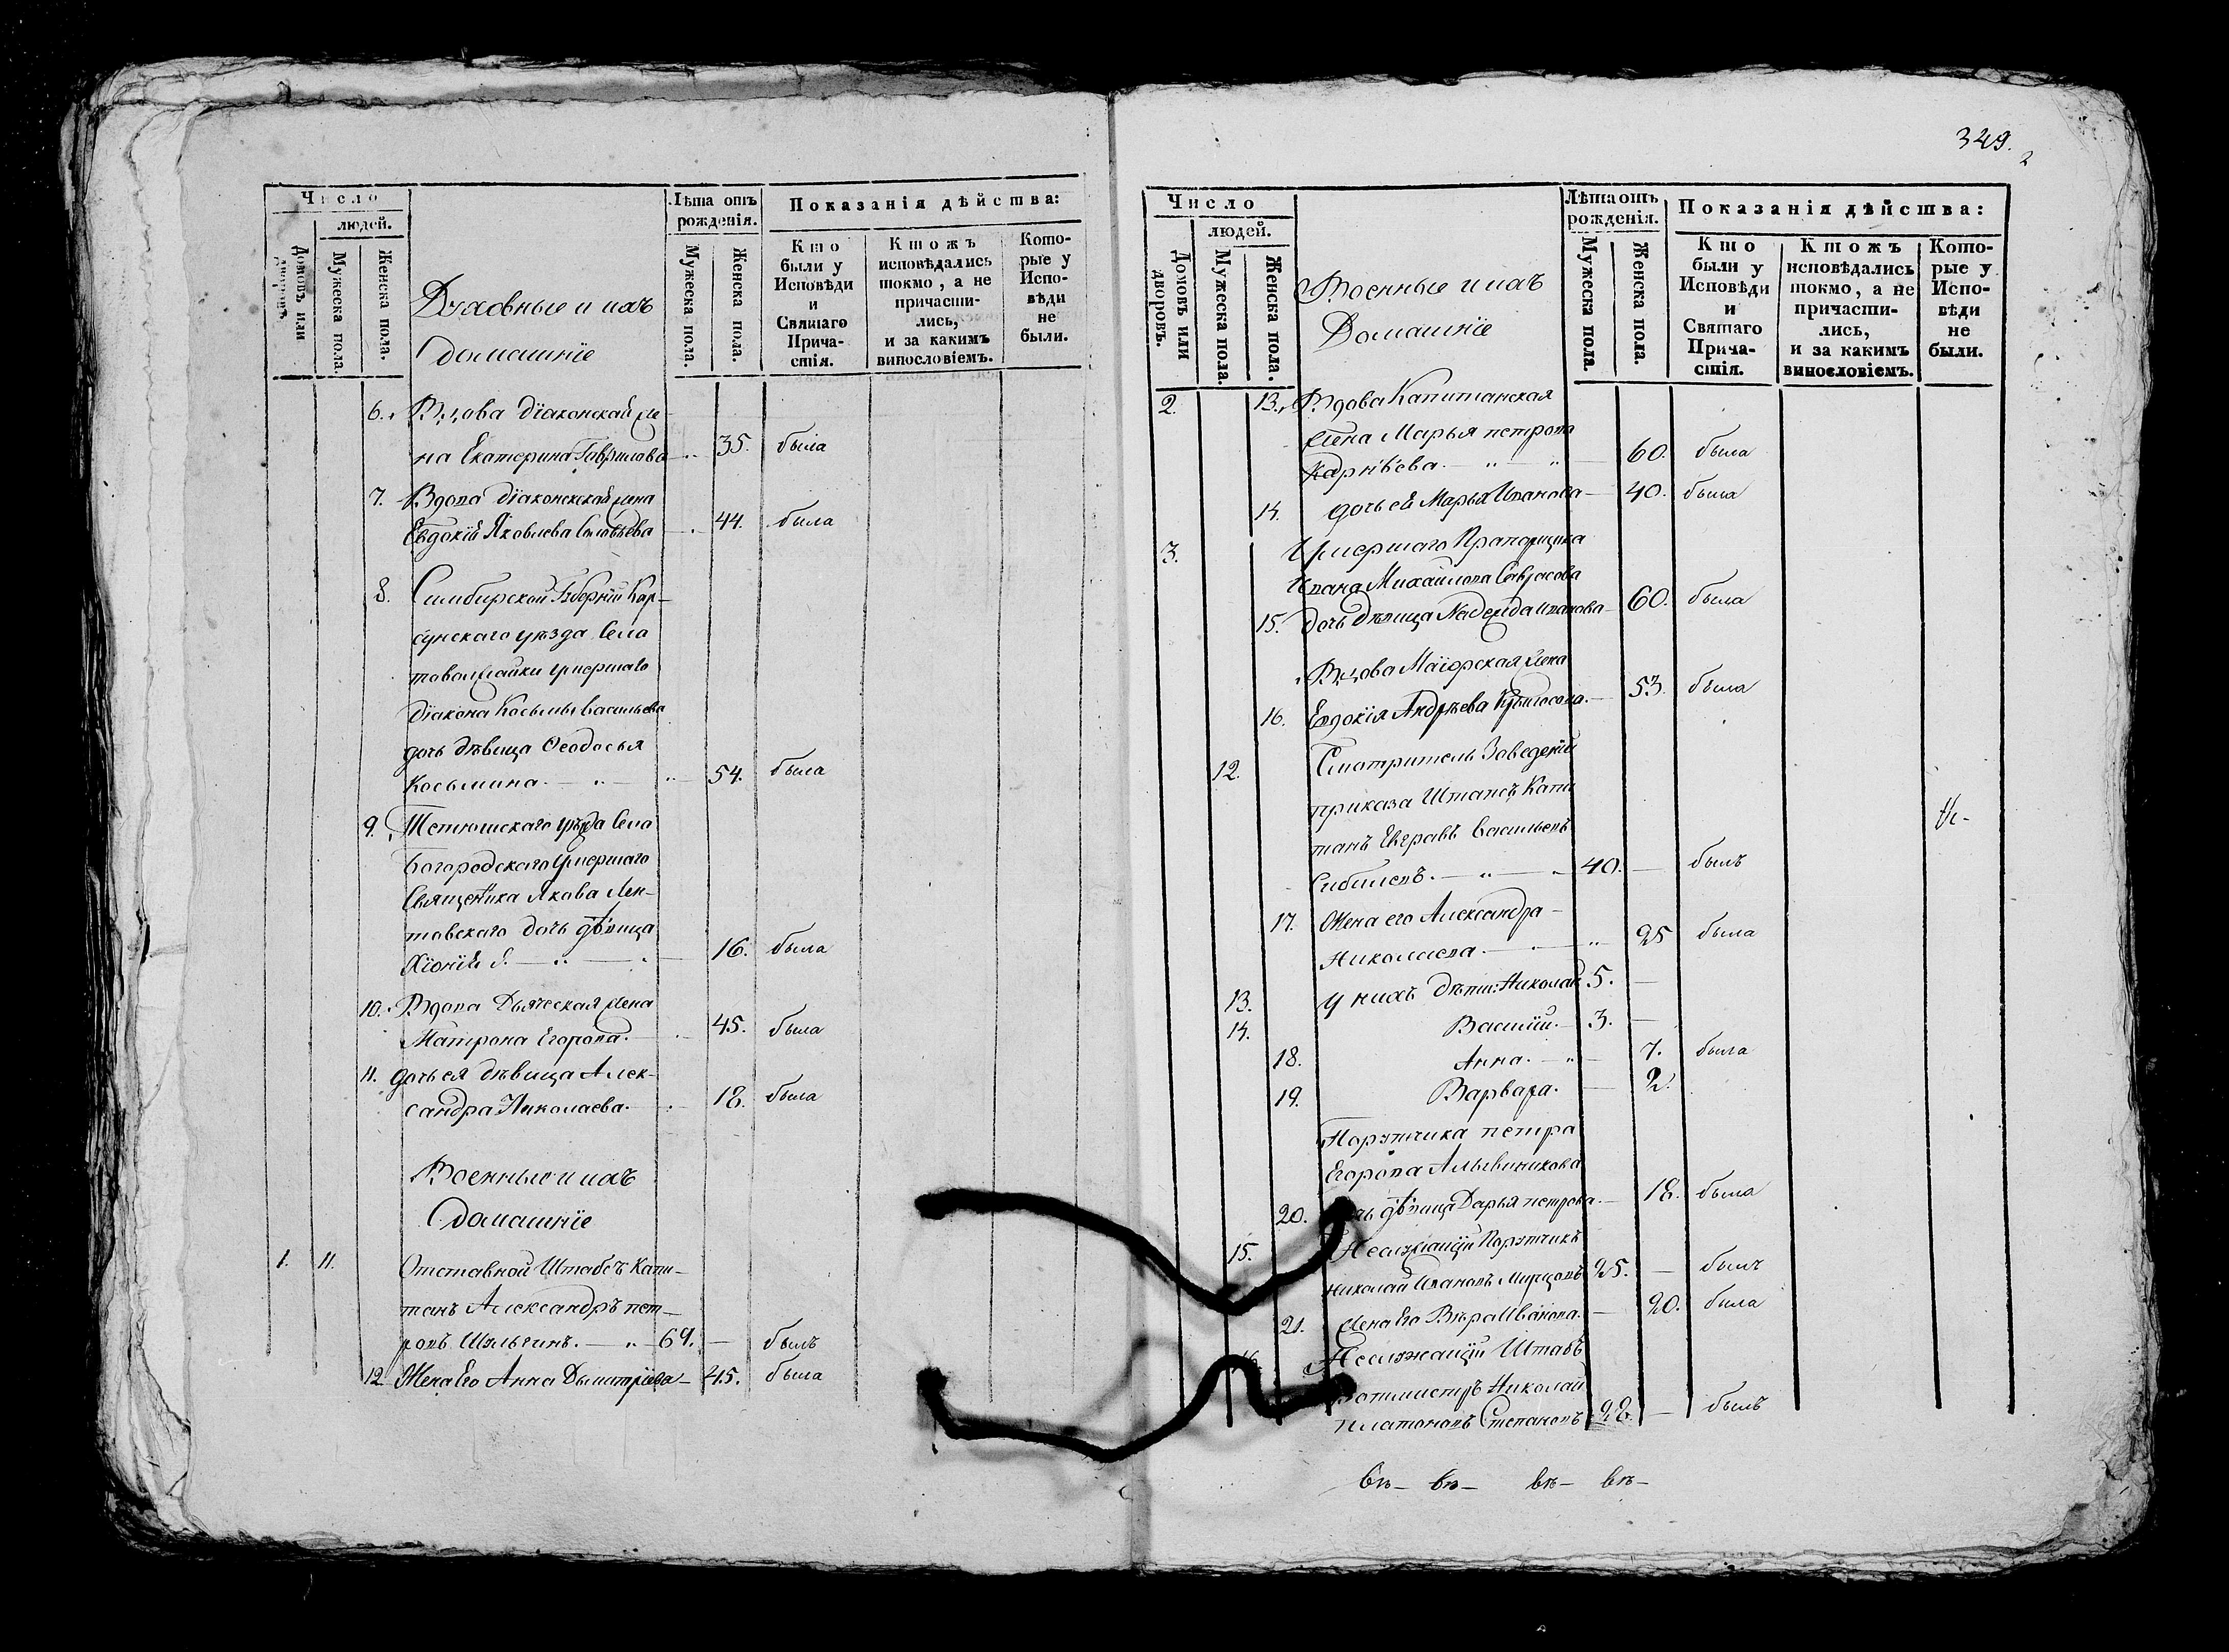 Число
людей.
Домовъ или дворовъ.
Мужеска пола.
Женска пола.
Духовные и ихъ
домашніе
Лѣта отъ
рожденія.
Мужеска пола.
Женска пола.
Показанія дѣйства:
Кто
были у
Исповѣди
и
Святаго
Прича-
стія.
Ктожъ
исповѣдались
токмо, а не
причасти-
лись,
и за какимъ
винословіемъ.
Кото-
рые у
Испо-
вѣди
не
были.
6. Вдова діаконская же-
на Екатерина Гаврилова 35. была
7. Вдова діаконская жена
Евдокія Яковлева Соловьева 44. была
8. Симбирской Губерніи Кар-
сунскаго уѣзда Села
умершаго
діакона Косьмы Васильева
дочь дѣвица Ѳеодосья
Косьмина. 54. была
9. Тетюшскаго уѣзда Села
Богородскаго умершаго
Священника Якова Лен-
товскаго дочь дѣвица
Хіонія 16. была
10. Вдова Дьяческая жена
Матрона Егорова. 45. была
11. дочь ея дѣвица Алек-
сандра Николаева. 18. была
Военные и ихъ
домашніе
1. 11. Отставной Штабсъ Капи-
танъ Александръ пет-
ровъ 69. — былъ
12 Жена Его Анна Дымитріева 45. была
349.
2
Число
людей.
Домовъ или дворовъ.
Мужеска пола.
Женска пола.
Военные и ихъ
Домашніе
Лѣта отъ
рожденія.
Мужеска пола.
Женска пола.
Показанія дѣйства:
Кто
были у
Исповѣди
и
Святаго
Прича-
стія.
Ктожъ
исповѣдались
токмо, а не
причасти-
лись,
и за какимъ
винословіемъ.
Кото-
рые у
Испо-
вѣди
не
были.
2. 13. Вдова Капитанская
жена Марья петрова
Карнѣева. 60. была
14. дочь ея Марья Иванова 40. была
3. Умершаго Прапорщика
Ивана Михайлова Саврасова
15. дочь дѣвица Надежда иванова 60. была
Вдова Маіорская жена
16. Евдокія Андрѣева 53. была
12. Смотритель Заведеній
приказа Штапсъ Капи
танъ Евгравъ Васильевъ
40. — былъ
17. Жена его Александра
Николаева. 25 была
13. У нихъ дѣти: Николай 5. —
14. Василій. 3. —
18. Анна. 7. была
19. Варвара. 2.
Порутчика петра
Егорова
20. дѣвица Дарья петрова. 18. была
15. Неслужащій Порутчикъ
Николай Ивановъ 25. — былъ
21. Жена Его Вѣра Иванова. 20. была
Неслужащій Штабъ
Ротмистръ Николай
Платоновъ Степановъ 28. — былъ